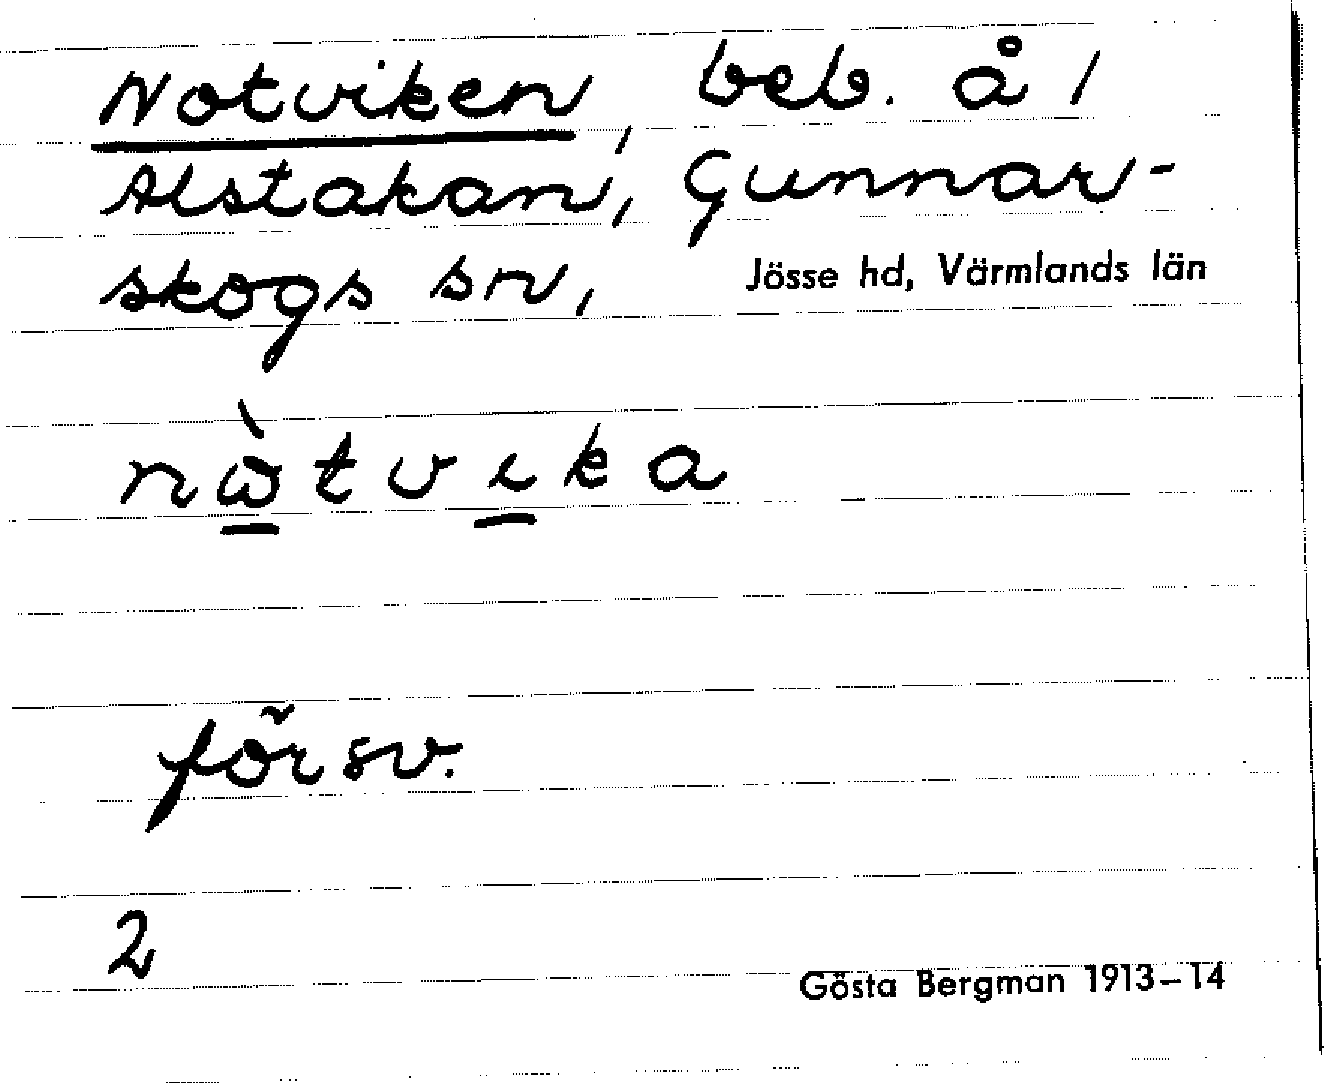 Notviken, beb. å /
Alstakan, Gunnar-
skogs sn, Jösse hd, Värmlands län
nὼtvıka
försv.
2
Gösta Bergman 1913-14